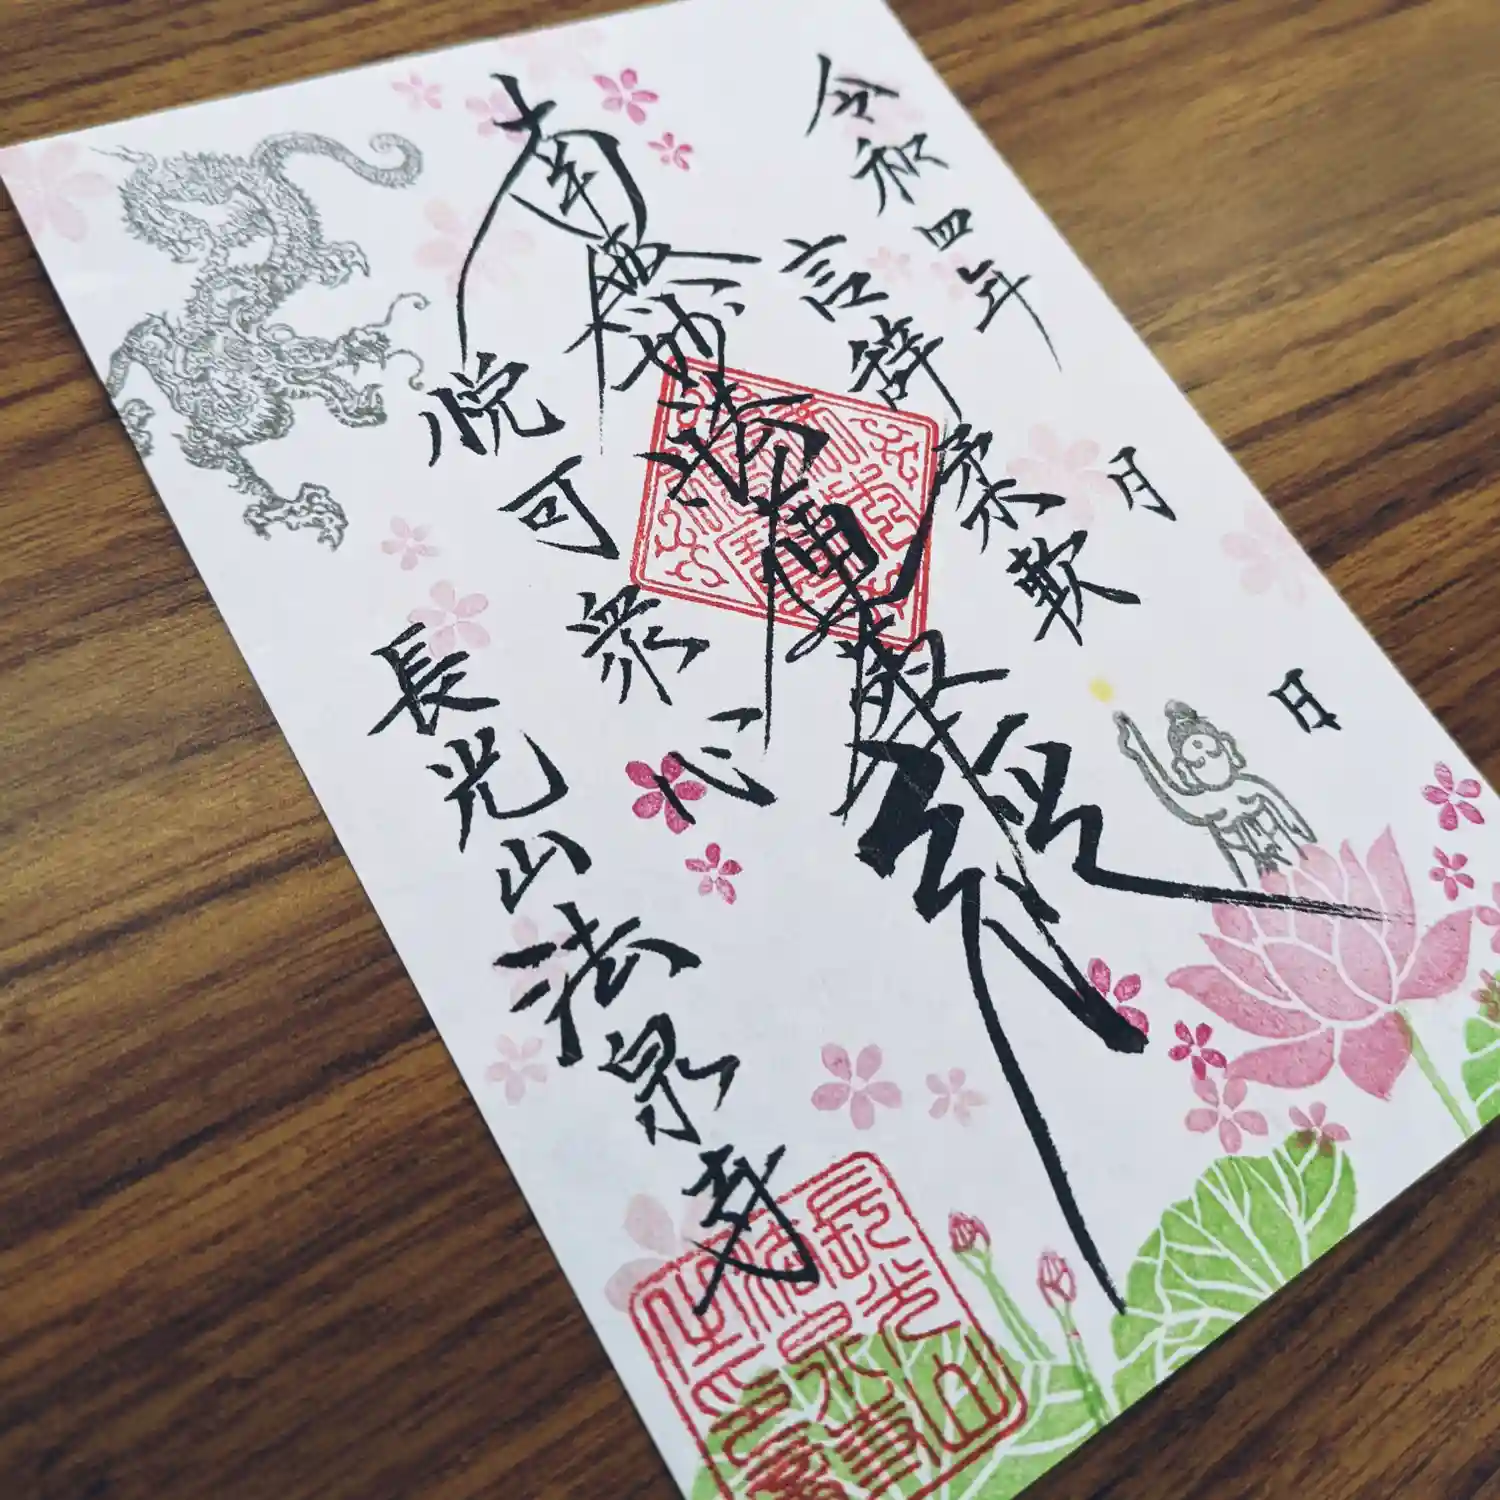 令和四年 月 日
言辞柔軟
南無妙法蓮華經
悦可衆心
長光山法泉寺
長光山
法泉寺